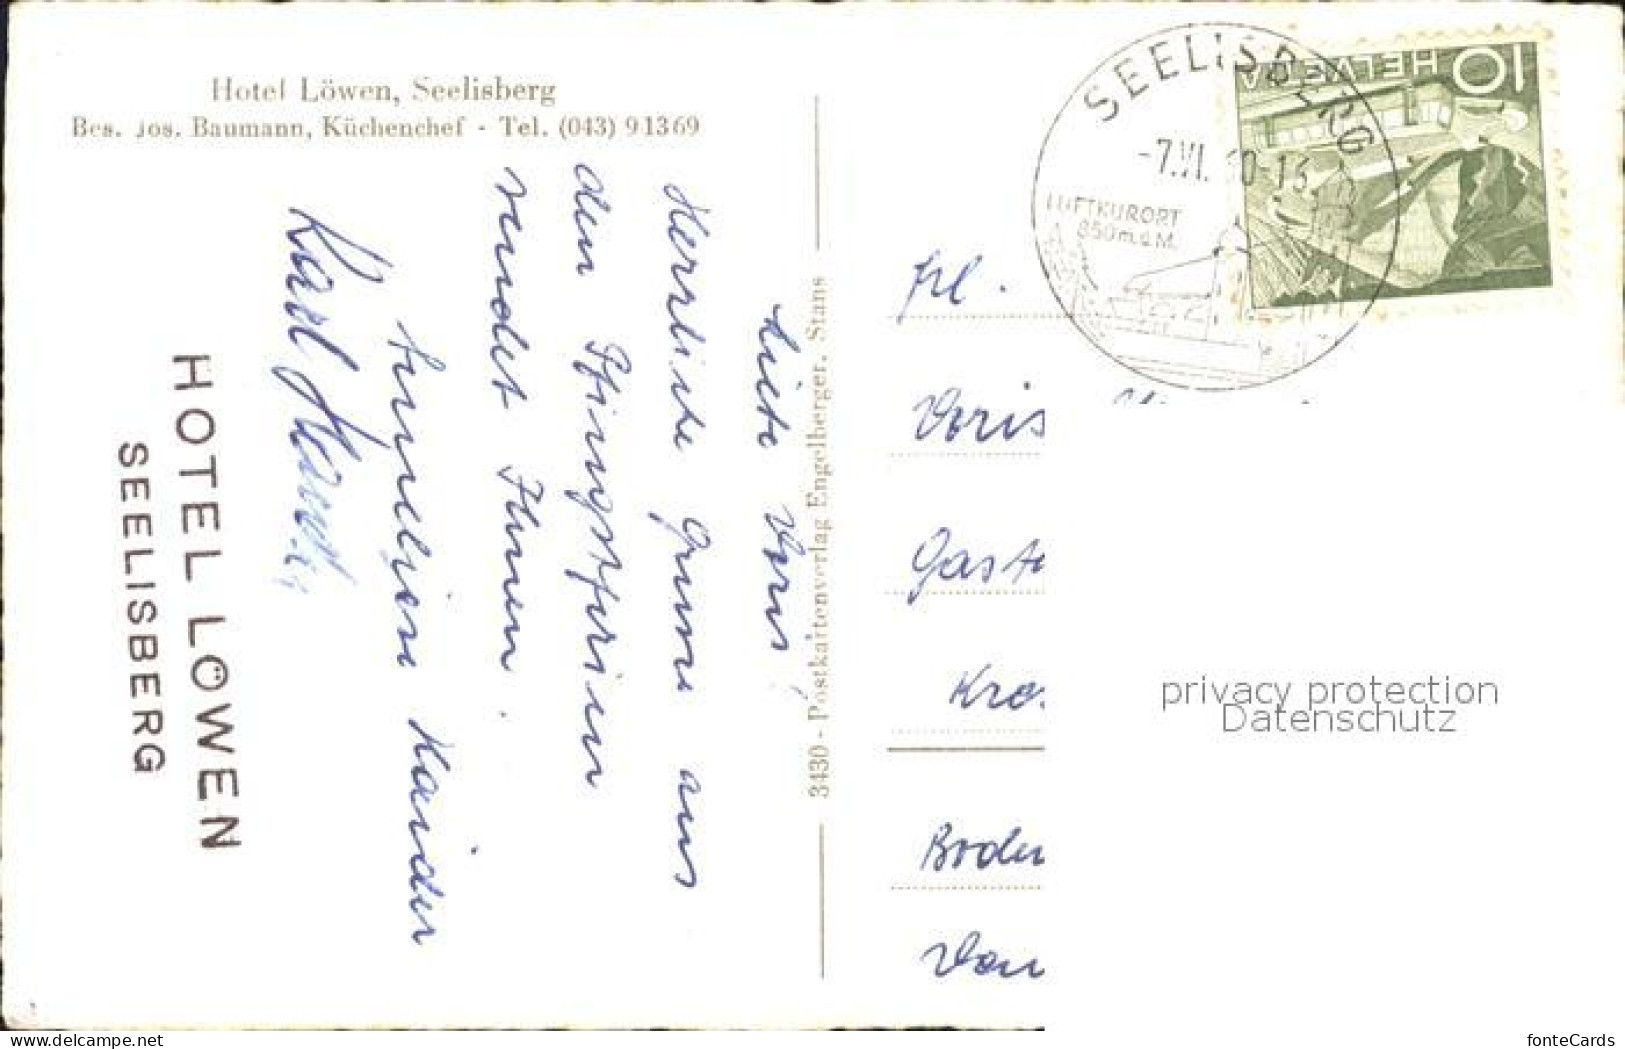 Hotel Löwen, Seelisberg
Bes. Jos. Baumann, Küchenchef - Tel. (043) 9 13 69
Liebe Doris,
Herrliche Grüsse aus
den Pfingstferien
sendet Ihnen.
Karl
HOTEL LÖWEN
SEELISBERG
3430 - Postkartenverlag Engelberger. Stans
SEELISBERG
-7.VI. 0-13
LUFTKURORT
850m.ü.M.
10 HELVETIA
Frl.
Doris
privacy protection
Datenschutz
www.delcampe.net
fonteCards